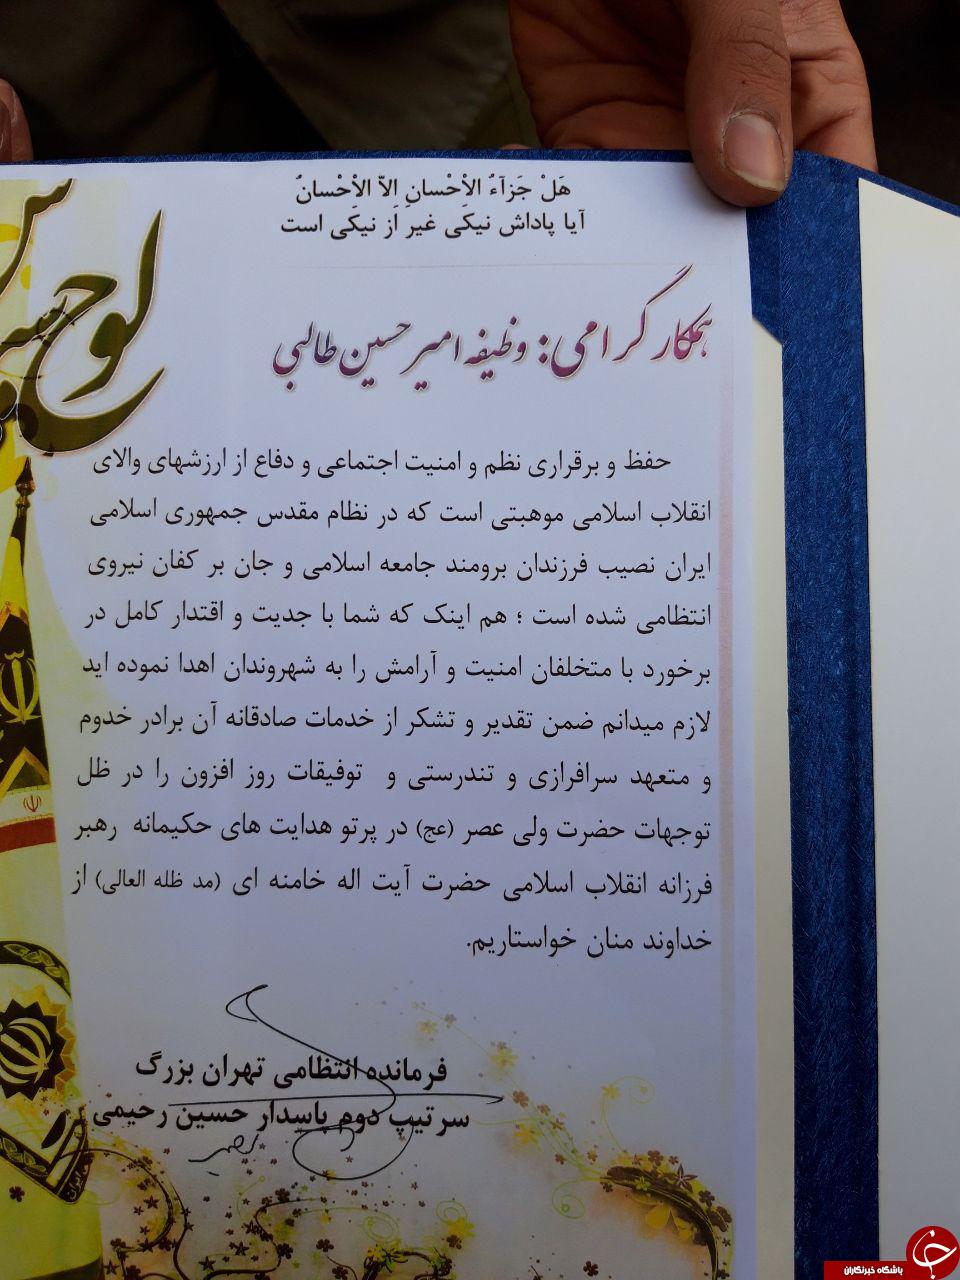 هَلْ جَزآءُ الاْحْسانِ اِلاّ الاْحْسانُ
آیا پاداش نیکی غیر از نیکی است
لوح سپاس
همکار گرامی: وظیفه امیر حسین طالبی
حفظ و برقراری نظم و امنیت اجتماعی و دفاع از ارزشهای والای
انقلاب اسلامی موهبتی است که در نظام مقدس جمهوری اسلامی
ایران نصیب فرزندان برومند جامعه اسلامی و جان بر کفان نیروی
انتظامی شده است ؛ هم اینک که شما با جدیت و اقتدار کامل در
برخورد با متخلفان امنیت و آرامش را به شهروندان اهدا نموده اید
لازم میدانم ضمن تقدیر و تشکر از خدمات صادقانه آن برادر خدوم
و متعهد سرافرازی و تندرستی و توفیقات روز افزون را در ظل
توجهات حضرت ولی عصر (عج) در پرتو هدایت های حکیمانه رهبر
فرزانه انقلاب اسلامی حضرت آیت اله خامنه ای (مد ظله العالی) از
خداوند منان خواستاریم.
فرمانده انتظامی تهران بزرگ
سرتیپ دوم پاسدار حسین رحیمی
ایران
باشگاه خبرنگاران